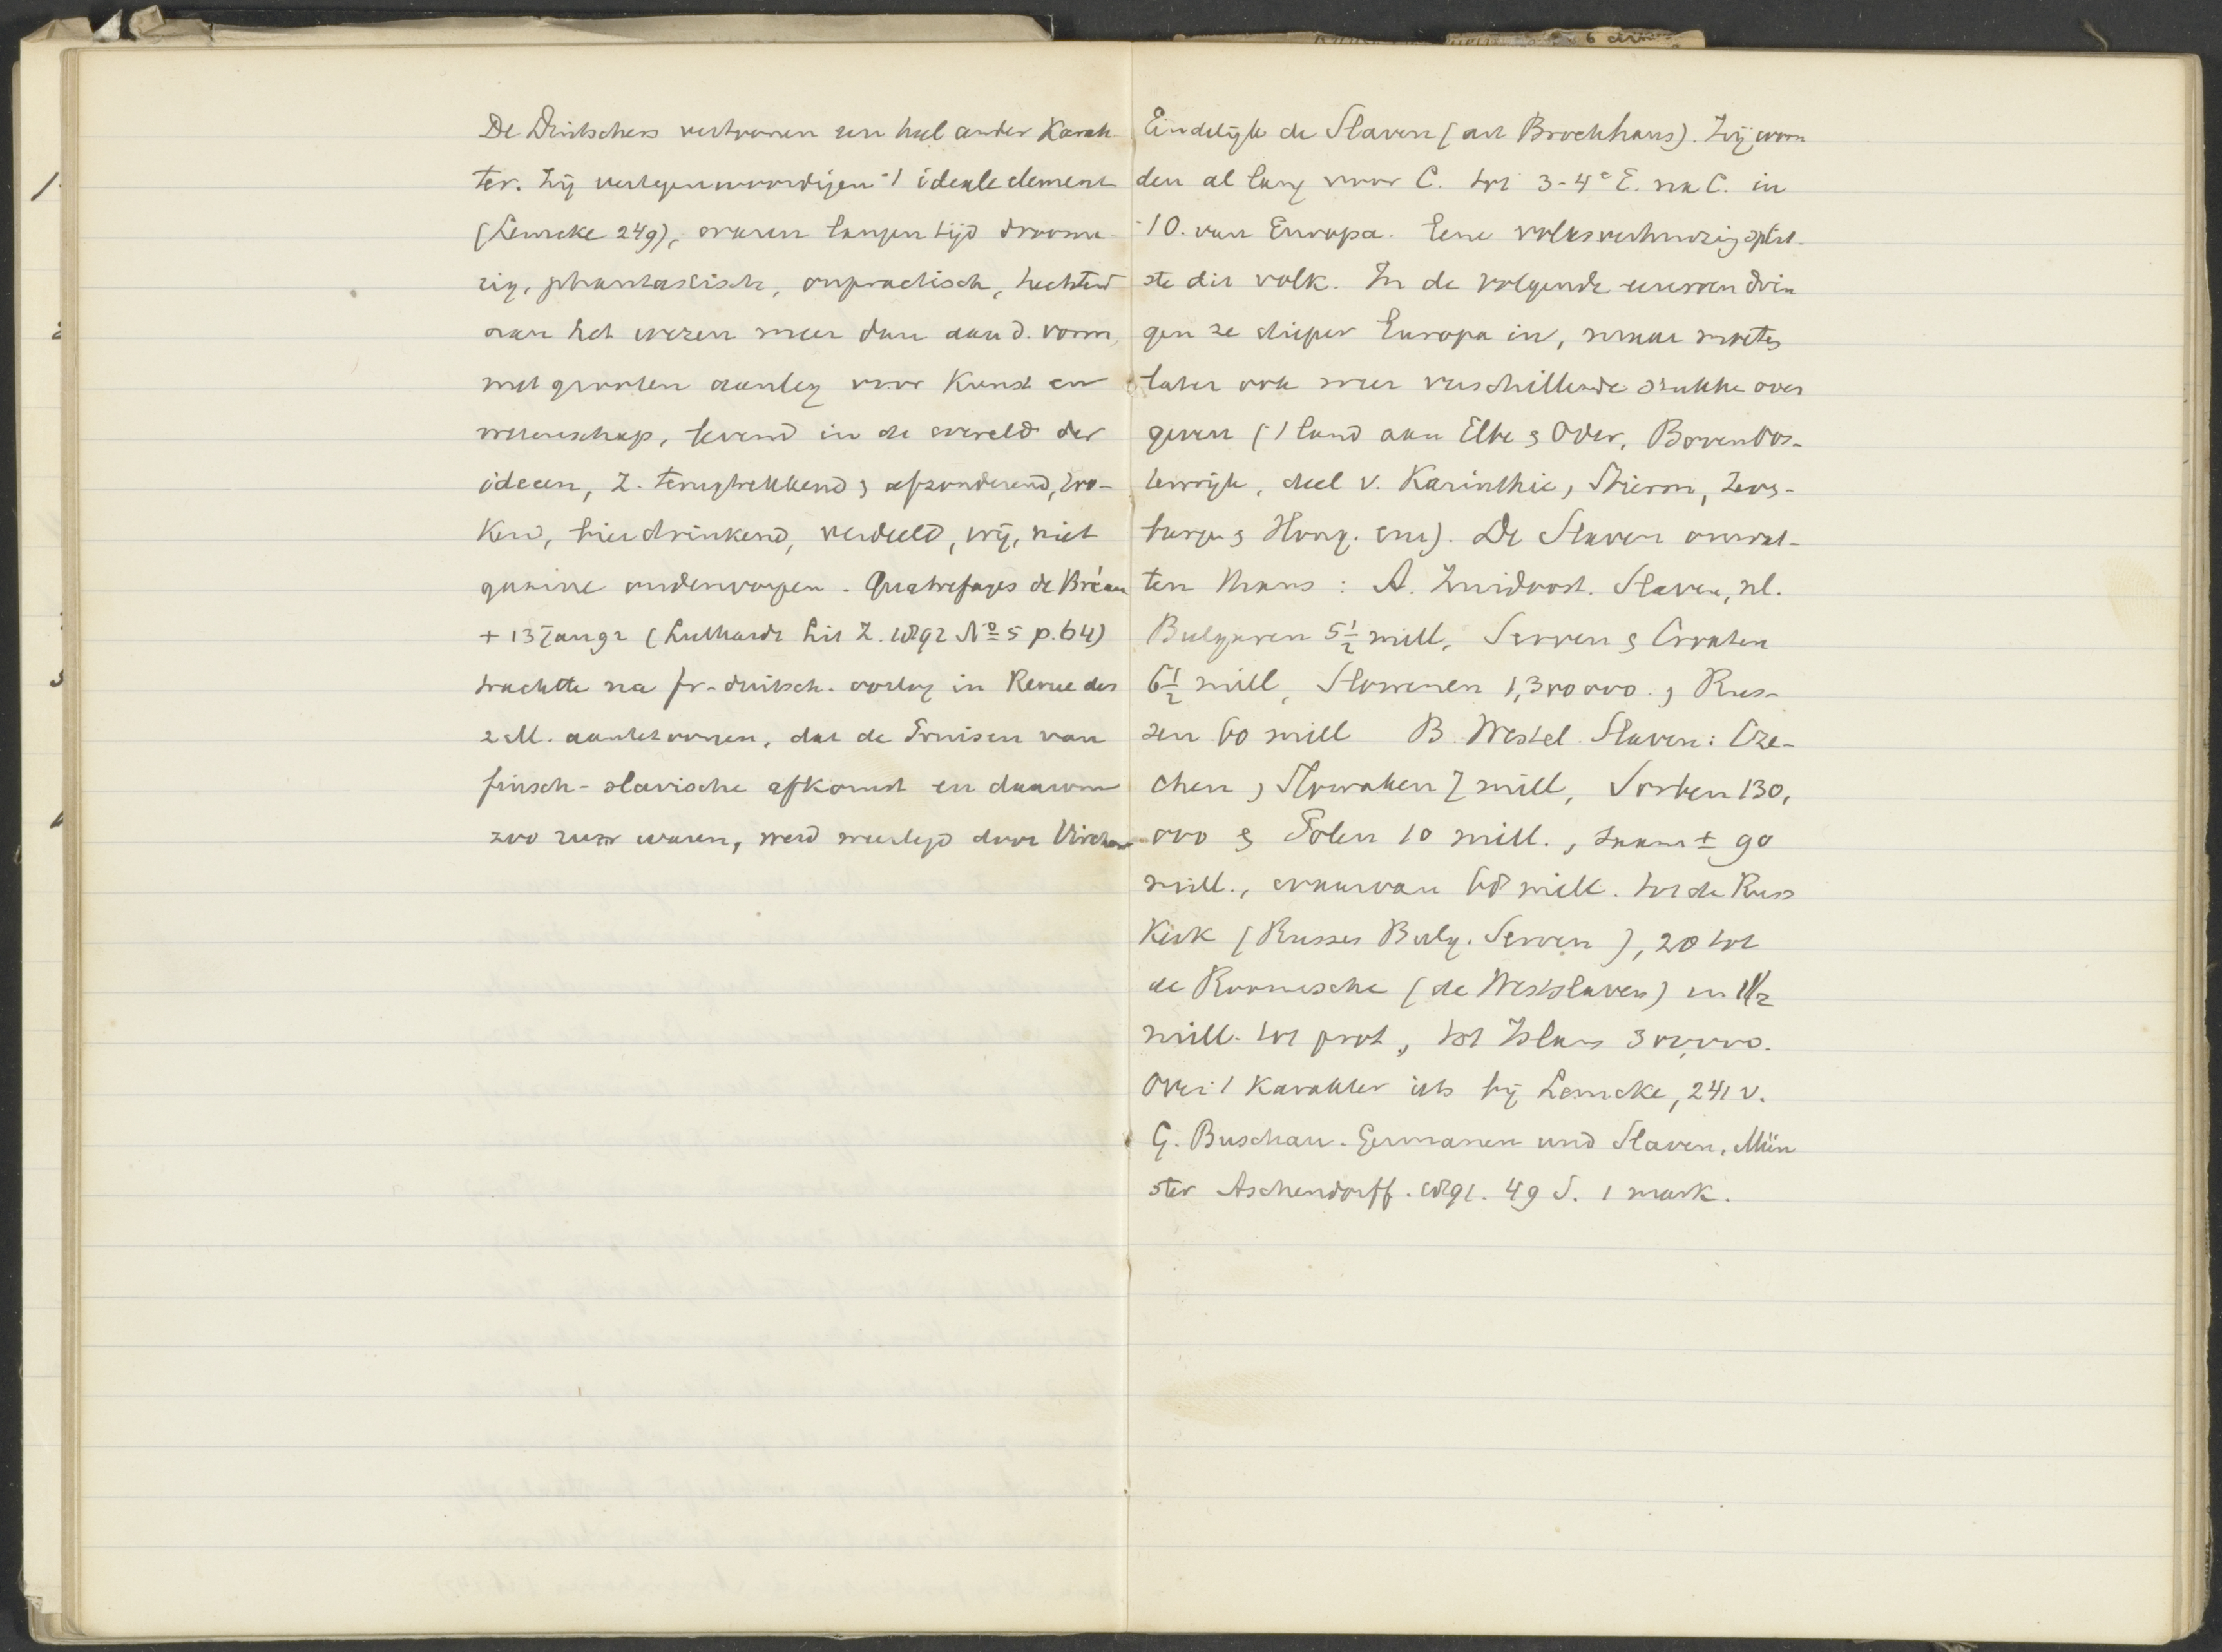 De Duitschers vertoonen een heel ander Karak
ter. Zij vertegenwoordigen 't ideale element
(Lemcke 249), waren langen tijd droome
rig, phantastisch, onpractisch, hechtend
aan het wezen meer dan aan d. vorm,
met grooten aanleg voor Kunst en
wetenschap, levend in de wereld der
ideeen, z. terugtrekkend & afzonderend, wro-
kend, bierdrinkend, verdeeld, vrij, niet
gaarne onderworpen. Quatrefages de Bréau
+ 13 Jan 92 (Luthardt Lit Z. 1892 No 5 p. 64)
trachtte na fr-duitsch. oorlog in Revue des
2 M. aantetoonen, dat de Pruisen van
finsch-slavische afkomst en daarom
zoo ruw waren, werd weerlegd door Virchow
Eindelijk de Slaven (art Brockhaus). Zij woon
den al lang voor C. tot 3-4e E. na C. in
't O. van Europa. Eene volksverhuizing splits-
te dit volk. In de volgende eeuwen drin
gen ze dieper Europa in, maar moeten
later ook weer verschillende stukken over
geven ('t land aan Elbe & Oder, Boven Oos-
tenrijk, deel v. Karinthie, Stierm, Zeven-
burgen & Hong. enz). De Slaven omvat-
ten thans: A. Zuidoost. Slaven, nl.
Bulgaren 5 1/2 mill, Serven & Croaten
6 1/2 mill, Slowenen 1,300 000. & Rus-
sen 60 mill B. Westel. Slaven: Cze-
chen & Slowaken 7 mill, Sorben 130,
000 & Polen 10 mill., saam ± 90
mill., waarvan 68 mill. tot de Russ
Kerk (Russen Bulg. Serven), 20 tot
de Roomsche (de Westslaven) en 1 1/2
mill. tot prot, tot Islam 800,000.
Over 't Karakter iets bij Lemcke, 241 v.
G. Buschan. Germanen und Slaven, Mün
ster Aschendorff. 1891. 49 S. 1 mark.